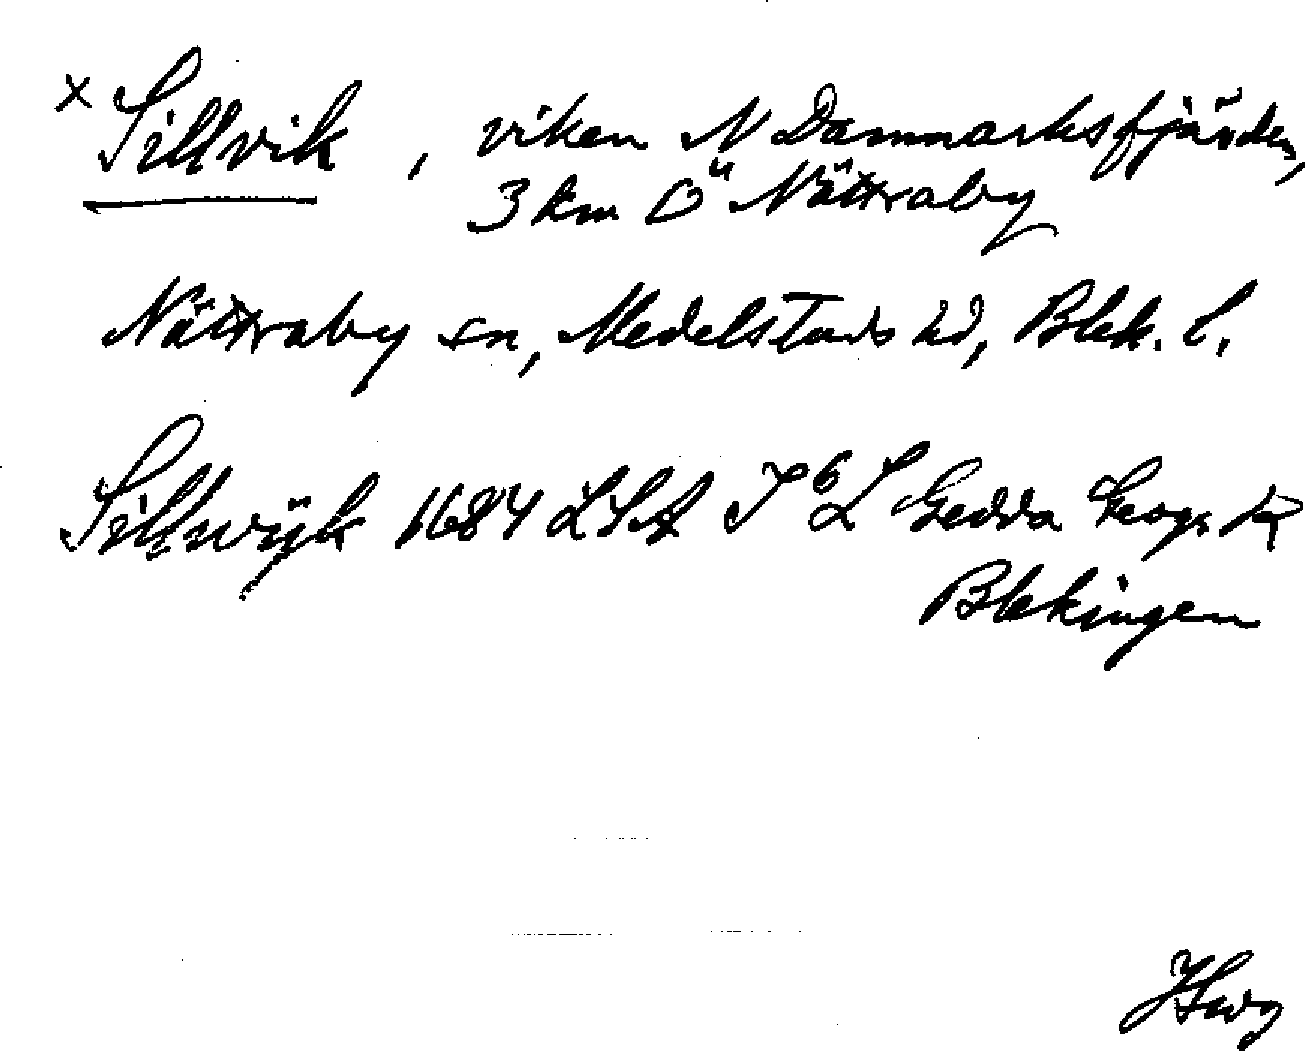 x Sillvik, viken N Danmarksfjärden,
3 km Ö Nättraby
Nättraby sn, Medelstads hd, Blek. l.
Sillwijk 1684 LSA I 6 L Gedda Geogr. K
Blekingen